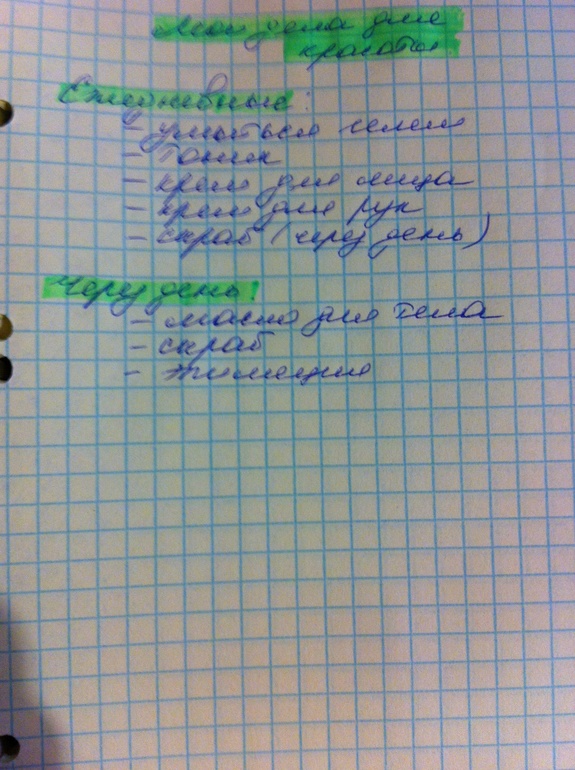 Мои дела для
красоты
Ежедневные:
- умыться гелем
- тоник
- крем для лица
- крем для рук
- скраб (через день)
Через день:
- масло для тела
- скраб
- эпиляция